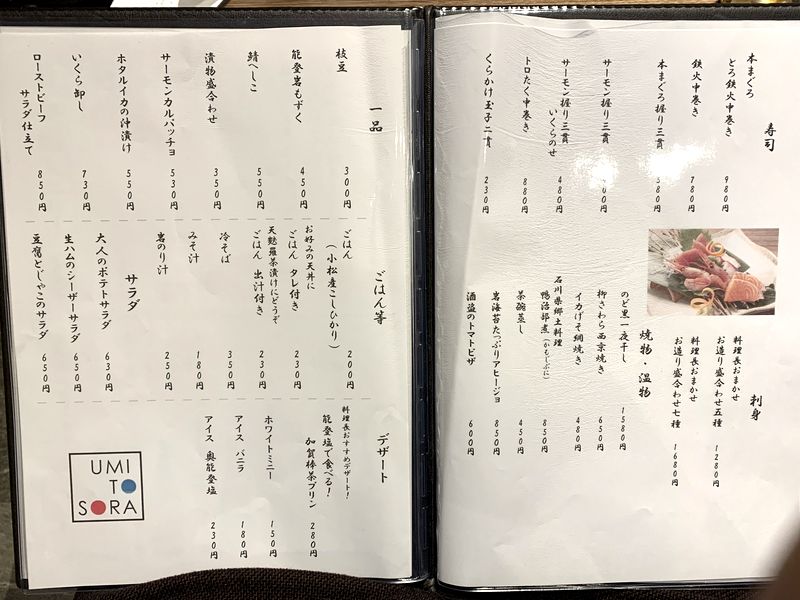 寿司
本まぐろ
とろ鉄火中巻き 980円
鉄火中巻き 780円
本まぐろ握り三貫 580円
サーモン握り三貫
サーモン握り三貫
いくらのせ 480円
トロたく中巻き 880円
くらかけ玉子二貫 230円
刺身
料理長おまかせ
お造り盛合わせ五種 1280円
料理長おまかせ
お造り盛合わせ七種 1680円
焼物・温物
のど黒一夜干し 1580円
柳さわら西京焼き 650円
イカげそ網焼き 480円
石川県郷土料理
鴨治部煮(かもじぶに) 850円
茶碗蒸し 450円
岩海苔たっぷりアヒージョ 850円
酒盗のトマトピザ 600円
一品
枝豆 300円
能登岩もずく 450円
鯖へしこ 550円
漬物盛合わせ 350円
サーモンカルパッチョ 530円
ホタルイカの沖漬け 550円
いくら卸し 730円
ローストビーフ
サラダ仕立て 850円
ごはん等
ごはん
(小松産こしひかり) 200円
お好みの天丼に
ごはん タレ付き 230円
天麩羅茶漬けにどうぞ
ごはん 出汁付き 230円
冷そば 350円
みそ汁 180円
岩のり汁 250円
サラダ
大人のポテトサラダ 630円
生ハムのシーザーサラダ 650円
豆腐とじゃこのサラダ 650円
デザート
料理長おすすめデザート!
能登塩で食べる!
加賀棒茶プリン 280円
ホワイトミニー 150円
アイス バニラ 180円
アイス 奥能登塩 230円
UMI
TO
SORA